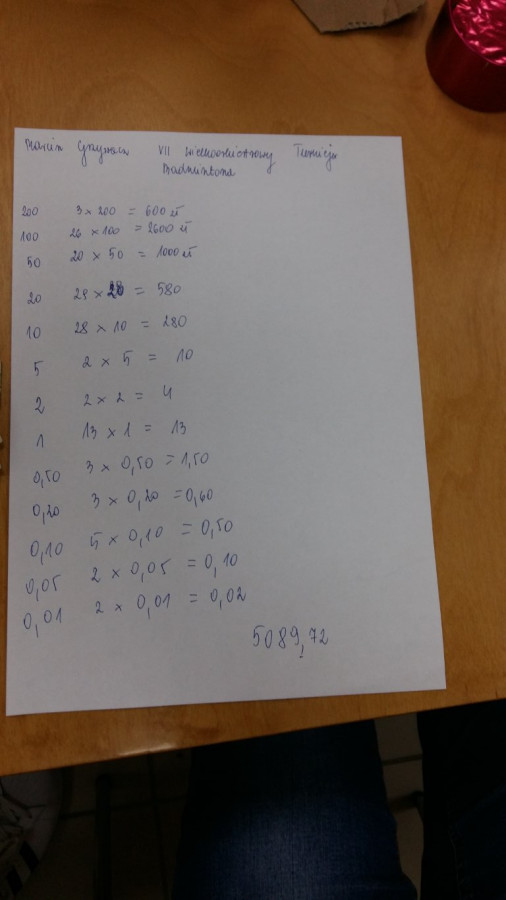 Marcin VII Wielkoorkiestrowy Turniej
Badmintona
200 3 x 200 = 600 zł
100 26 x 100 = 2600 zł
50 20 x 50 = 1000 zł
20 29 x 20 = 580
10 28 x 10 = 280
5 2 x 5 = 10
2 2 x 2 = 4
1 13 x 1 = 13
0,50 3 x 0,50 = 1,50
0,20 3 x 0,20 = 0,60
0,10 5 x 0,10 = 0,50
0,05 2 x 0,05 = 0,10
0,01 2 x 0,01 = 0,02
5089,72